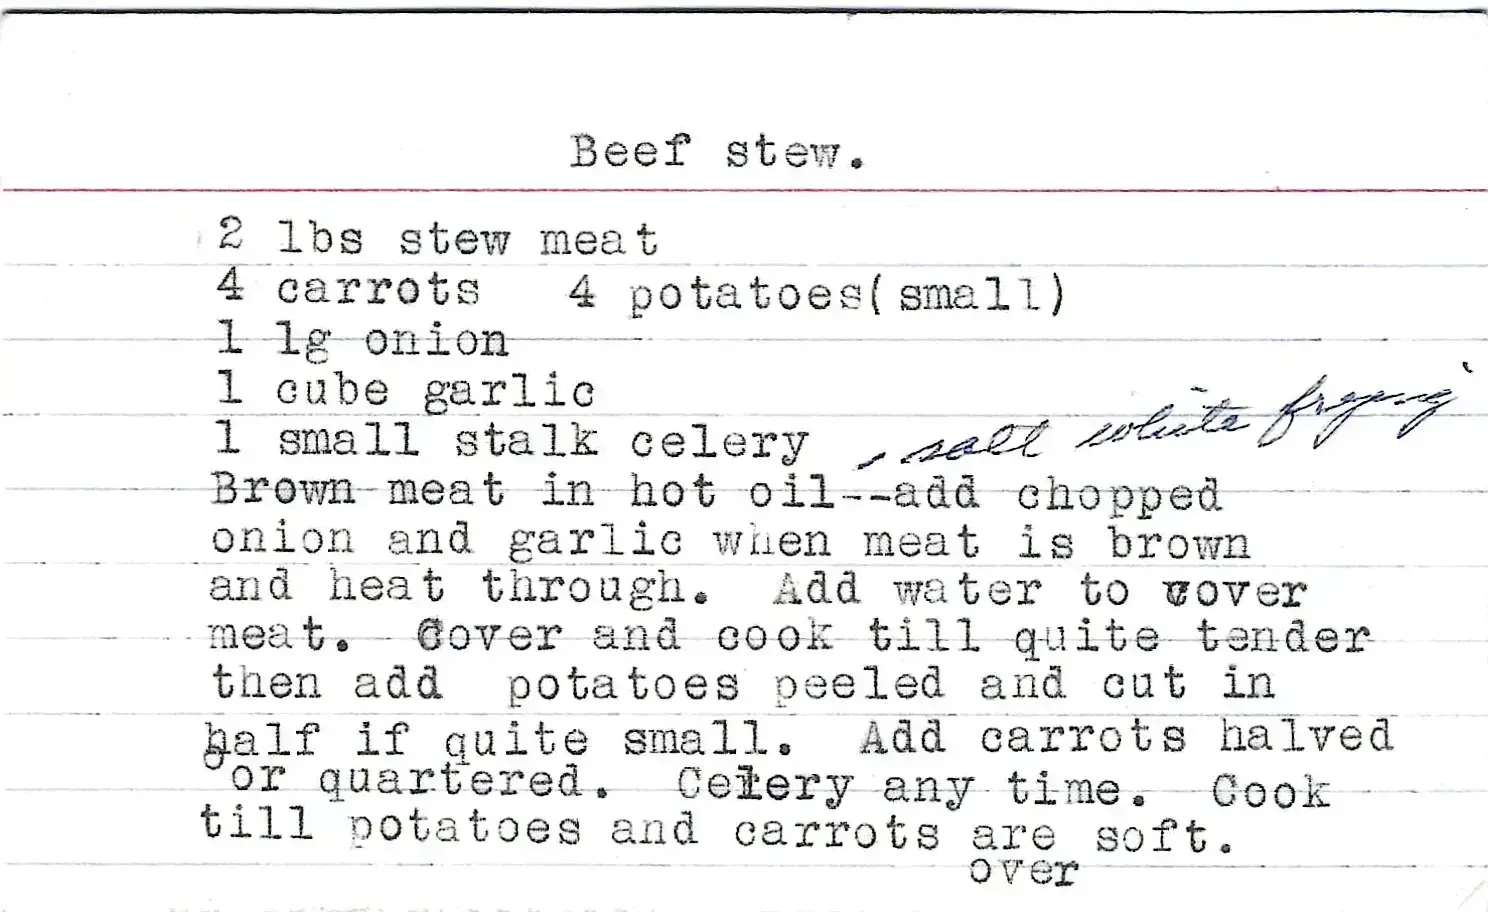 Beef stew.
2 lbs stew meat
4 carrots 4 potatoes(small)
1 lg onion
1 cube garlic
1 small stalk celery , salt while frying
Brown meat in hot oil--add chopped
onion and garlic when meat is brown
and heat through. Add water to cover
meat. Cover and cook till quite tender
then add potatoes peeled and cut in
half if quite small. Add carrots halved
or quartered. Celery any time. Cook
till potatoes and carrots are soft.
over